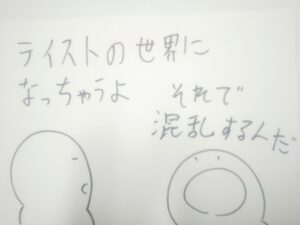 テイストの世界に
なっちゃうよ
それで
混乱するんだ